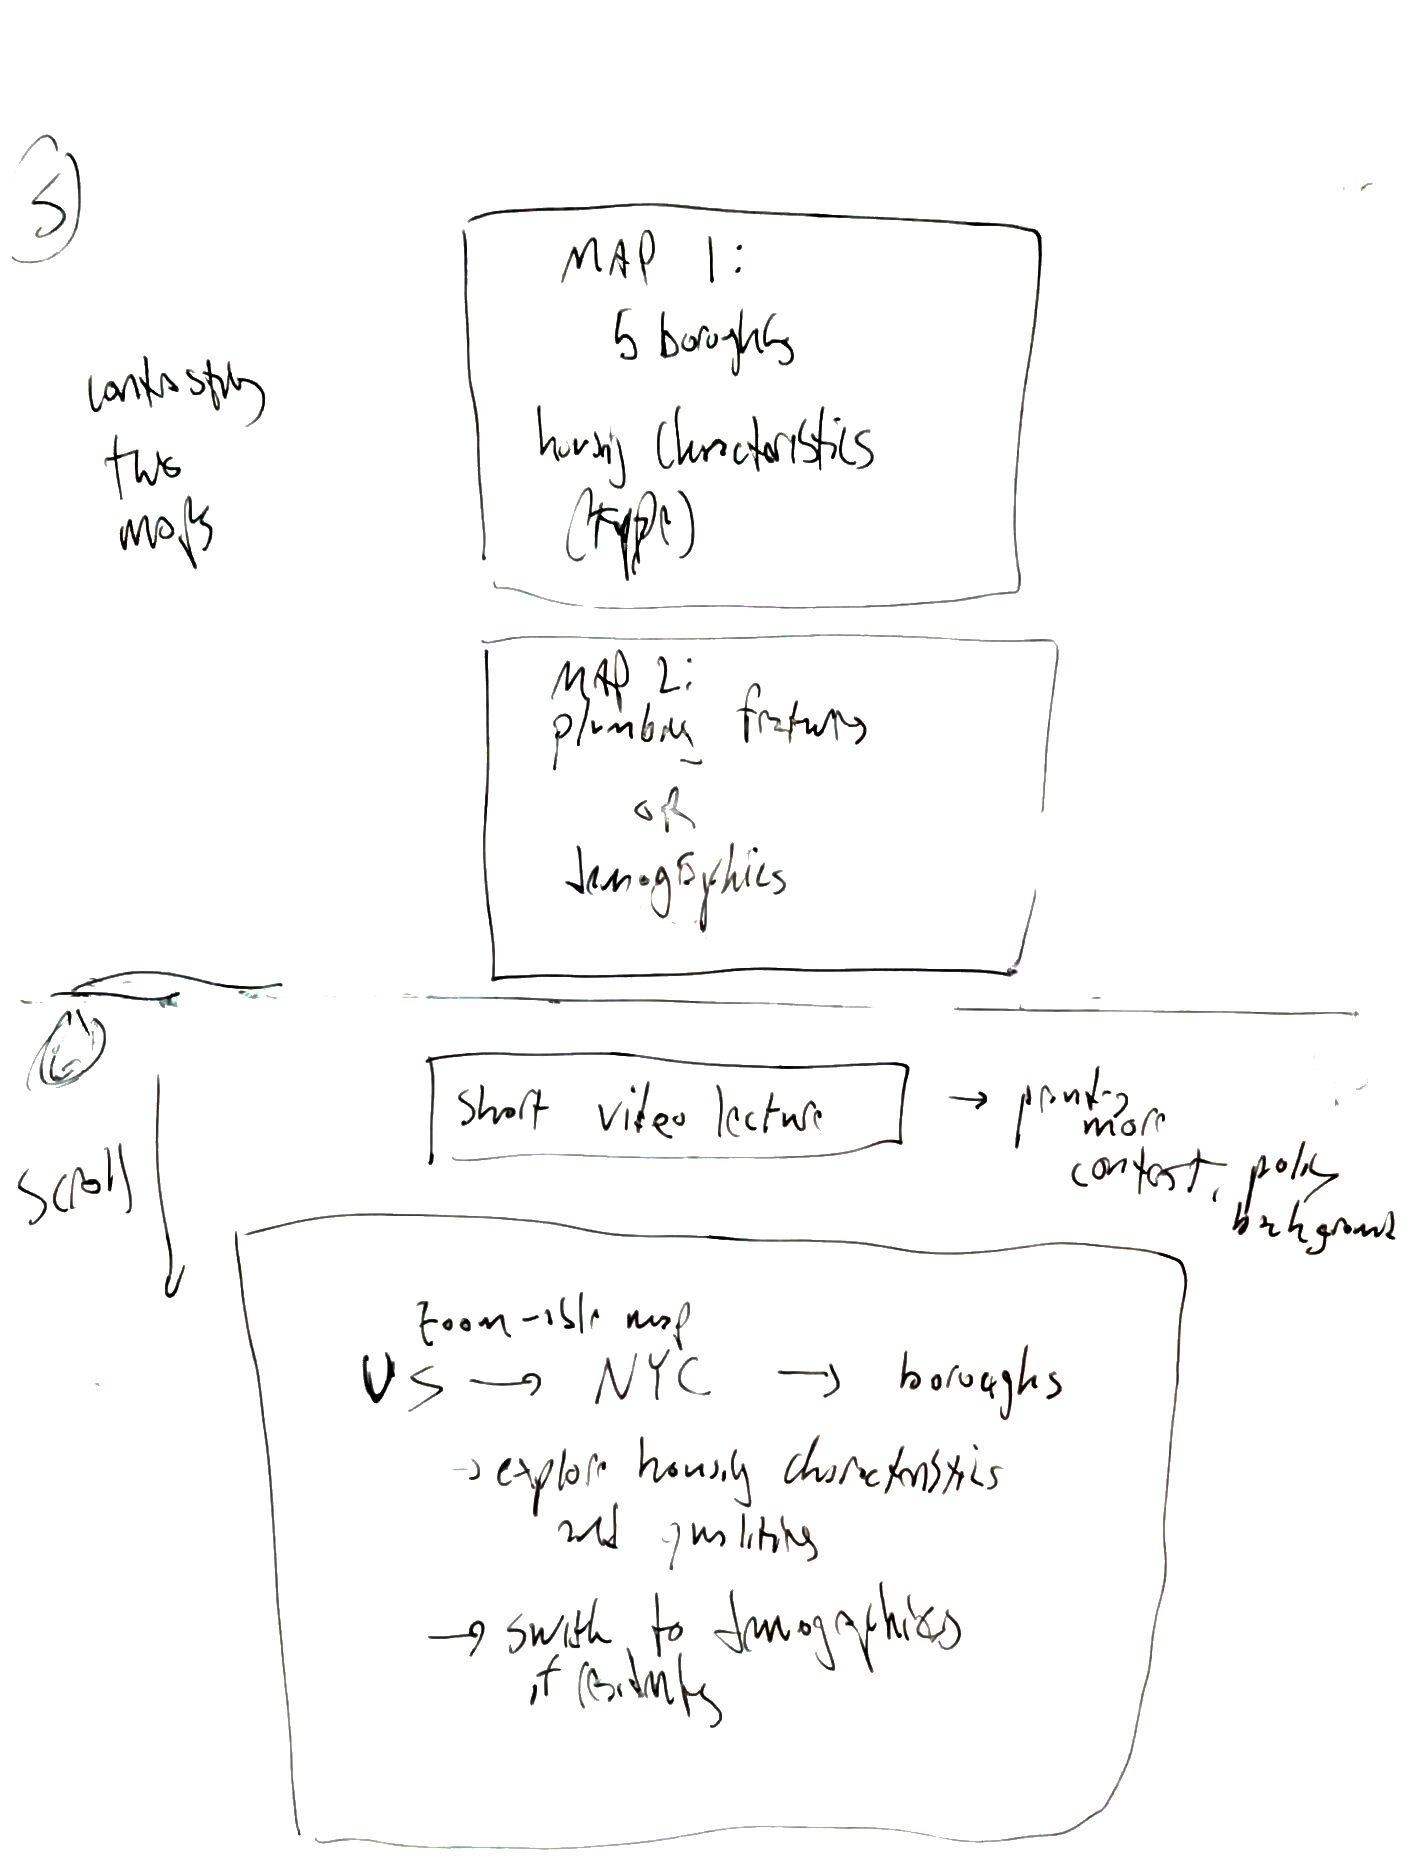 5
contrasting
two
maps
MAP 1:
5 boroughs
housing characteristics
(type)
MAP 2:
plumbing features
OR
demographics
6
scroll
short video lecture
→
more
context, policy
background
zoom-able map
US → NYC → boroughs
→ explore housing characteristics
and qualities
→ switch to demographics
of residents